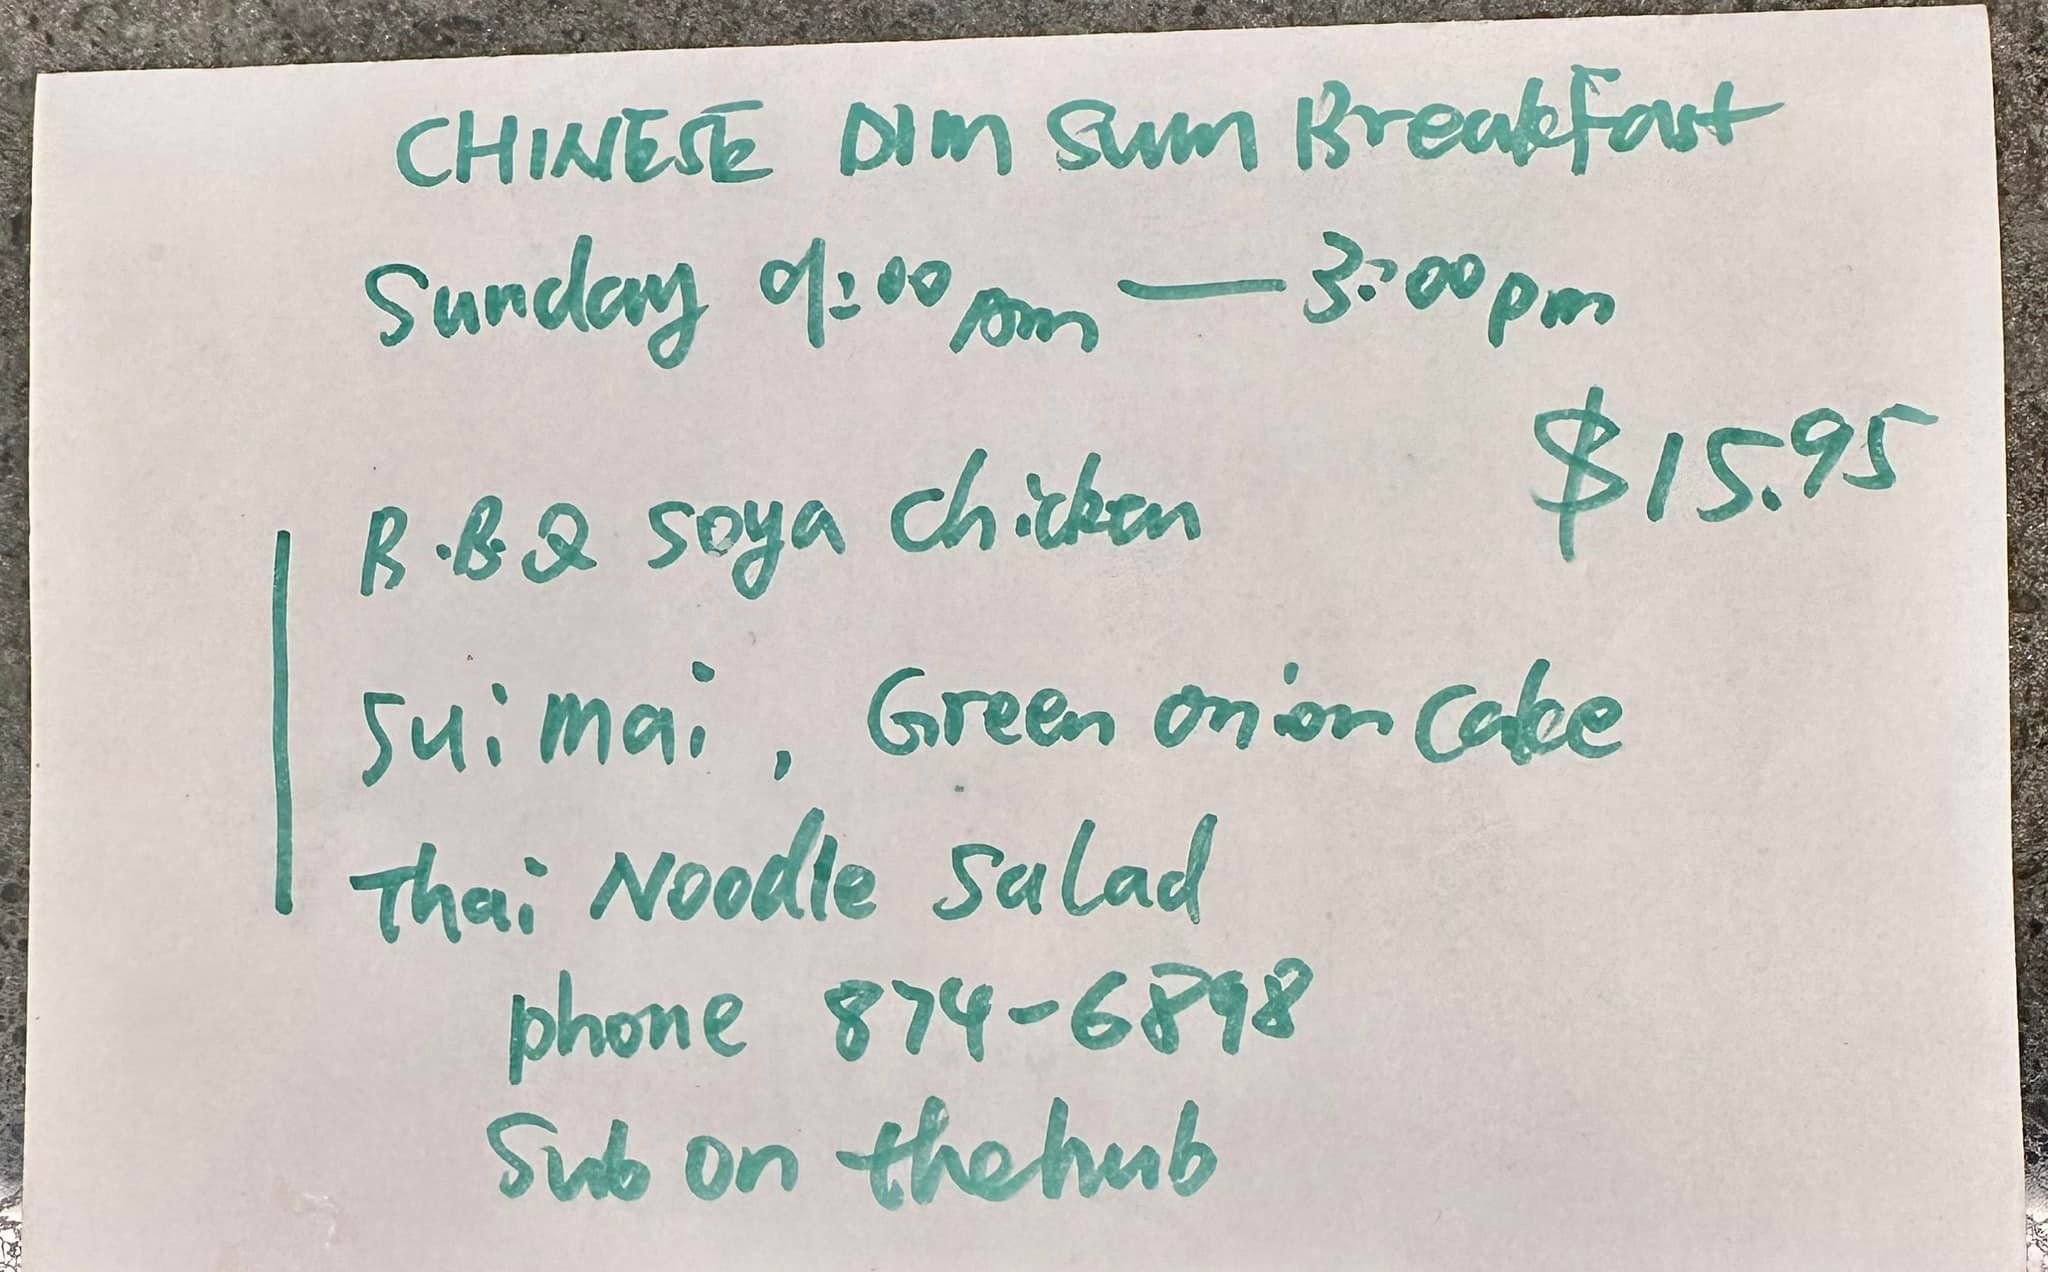 CHINESE DIM Sum Breakfast
Sunday 9:00 am — 3:00pm
$15.95
B.B.Q soya chicken
sui mai, Green onion cake
Thai Noodle salad
phone 874-6898
Sub on the hub